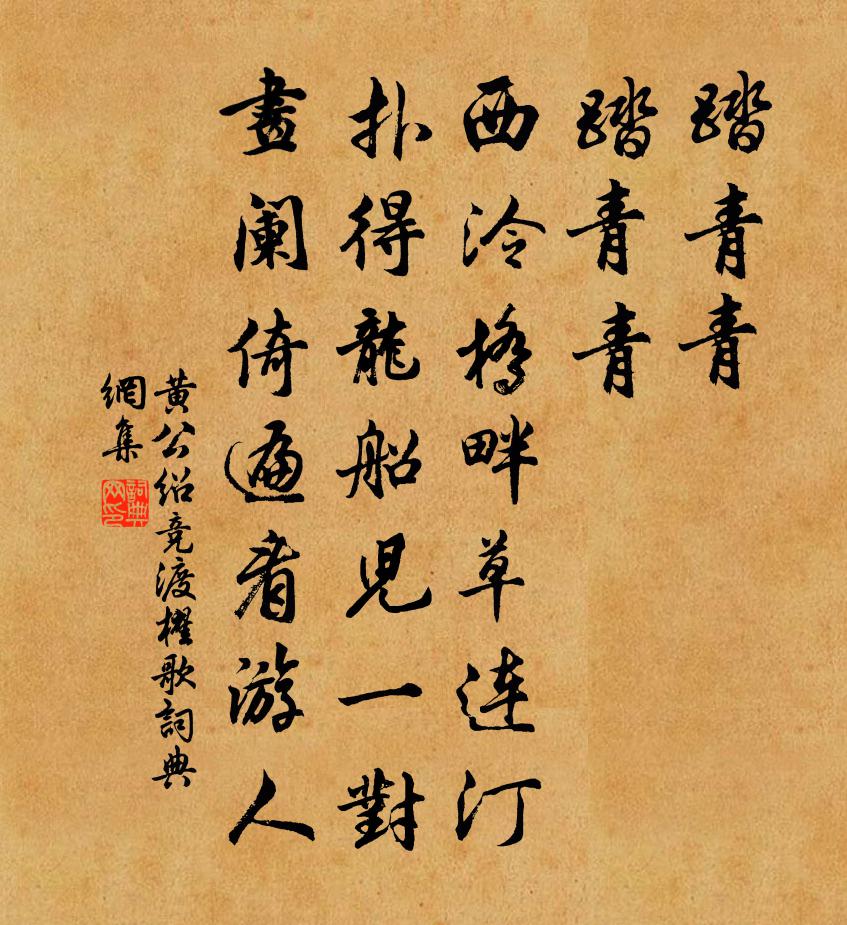 踏青青
踏青青
西泠橋畔草連汀
扑得龍船兒一對
畫闌倚遍看游人
黃公紹競渡櫂歌詞典
網集
詞典
网印